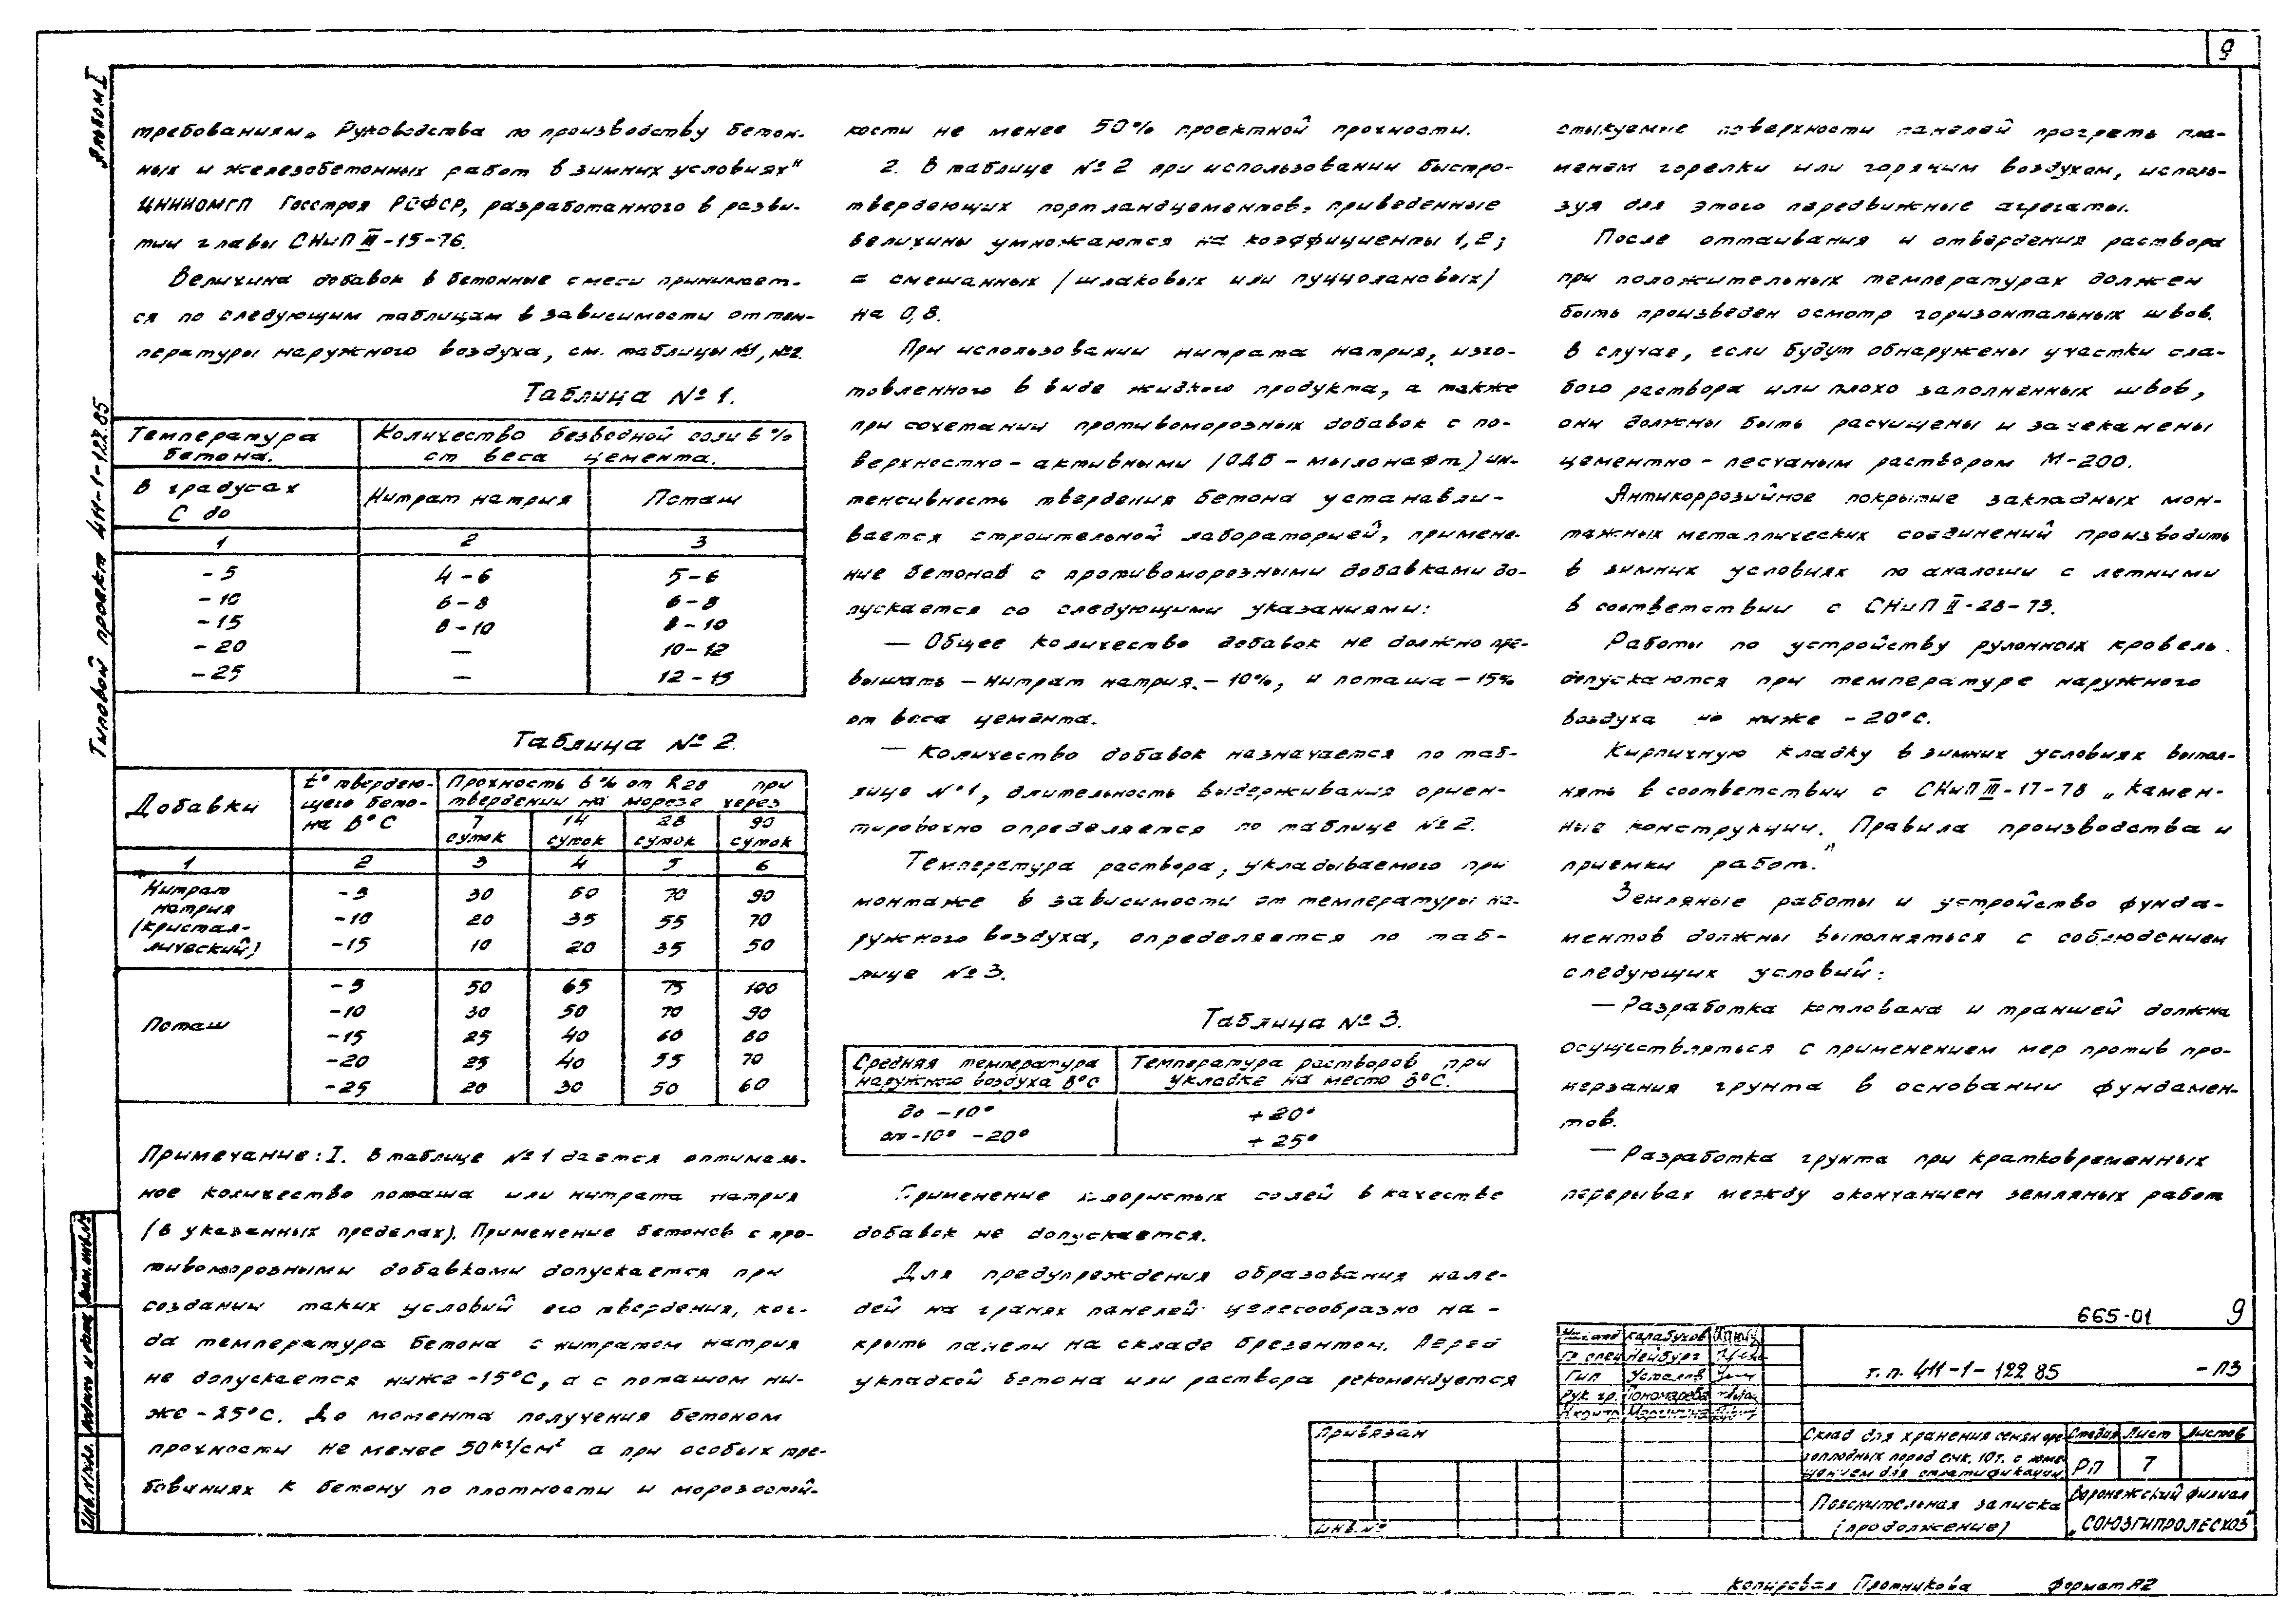 9
Альбом I
Типовой проект 411-1-122.85
требованиям „Руководства по производству бетон-
ных и железобетонных работ в зимних условиях"
ЦНИИОМТП Госстроя РСФСР, разработанного в разви-
тии главы СНиП III-15-76.
Величина добавок в бетонные смеси принимает-
ся по следующим таблицам в зависимости от тем-
пературы наружного воздуха, см. таблицы №1, №2.
Таблица №1.
Температура бетона. Количество безводной соли в % от веса цемента.
В градусах С до Нитрат натрия Поташ
1 2 3
-5 4-6 5-6
-10 6-8 6-8
-15 8-10 8-10
-20 — 10-12
-25 — 12-15
Таблица №2.
Добавки t° твердею-щего бето-на в°С Прочность в % от R28 при твердении на морозе через
7 суток 14 суток 28 суток 90 суток
1 2 3 4 5 6
Нитрат натрия (кристал-лический)
-5 30 50 70 90
-10 20 35 55 70
-15 10 20 35 50
Поташ
-5 50 65 75 100
-10 30 50 70 90
-15 25 40 60 80
-20 25 40 55 70
-25 20 30 50 60
Примечание: I. В таблице №1 дается оптималь-
ное количество поташа или нитрата натрия
(в указанных пределах). Применение бетонов с про-
тивоморозными добавками допускается при
создании таких условий его твердения, ког-
да температура бетона с нитратом натрия
не допускается ниже -15°С, а с поташом ни-
же -25°С. До момента получения бетоном
прочности не менее 50 кг/см² а при особых тре-
бованиях к бетону по плотности и морозостой-
кости не менее 50% проектной прочности.
2. В таблице №2 при использовании быстро-
твердеющих портландцементов, приведенные
величины умножаются на коэффициенты 1,2;
а смешанных /шлаковых или пуццолановых/
на 0,8.
При использовании нитрата натрия, изго-
товленного в виде жидкого продукта, а также
при сочетании противоморозных добавок с по-
верхностно-активными /ОДБ-мылонафт/ ин-
тенсивность твердения бетона устанавли-
вается строительной лабораторией, примене-
ние бетонов с противоморозными добавками до-
пускается со следующими указаниями:
— Общее количество добавок не должно пре-
вышать — нитрат натрия. — 10%, и поташа — 15%
от веса цемента.
— Количество добавок назначается по таб-
лице №1, длительность выдерживания ориен-
тировочно определяется по таблице №2.
Температура раствора, укладываемого при
монтаже в зависимости от температуры на-
ружного воздуха, определяется по таб-
лице №3.
Таблица №3.
Средняя температура наружного воздуха в°С Температура растворов при укладке на место в°С.
до -10° +20°
от -10° -20° +25°
Применение хлористых солей в качестве
добавок не допускается.
Для предупреждения образования нале-
дей на гранях панелей целесообразно на-
крыть панели на складе брезентом. Перед
укладкой бетона или раствора рекомендуется
стыкуемые поверхности панелей прогреть пла-
менем горелки или горячим воздухом, исполь-
зуя для этого передвижные агрегаты.
После оттаивания и отвердения раствора
при положительных температурах должен
быть произведен осмотр горизонтальных швов.
В случае, если будут обнаружены участки сла-
бого раствора или плохо заполненных швов,
они должны быть расчищены и зачеканены
цементно-песчаным раствором М-200.
Антикоррозийное покрытие закладных мон-
тажных металлических соединений производить
в зимних условиях по аналогии с летними
в соответствии с СНиП II-28-73.
Работы по устройству рулонных кровель
допускаются при температуре наружного
воздуха не ниже -20°С.
Кирпичную кладку в зимних условиях выпол-
нять в соответствии с СНиП III-17-78 „Камен-
ные конструкции. Правила производства и
приемки работ."
Земляные работы и устройство фунда-
ментов должны выполняться с соблюдением
следующих условий:
— Разработка котлована и траншей должна
осуществляться с применением мер против про-
мерзания грунта в основании фундамен-
тов.
— Разработка грунта при кратковременных
перерывах между окончанием земляных работ
665-01 9
Карабухов
Гл. спец Нейбург
ГИП
Рук. гр. Пономарева
Н.контр
т.п. 411-1-122 85 -ПЗ
Привязан
Инв.№
Склад для хранения семян оре-
хоплодных пород емк. 10т. с поме-
щением для стратификации
Стадия Лист Листов
РП 7
Пояснительная записка
(продолжение)
Воронежский филиал
„СОЮЗГИПРОЛЕСХОЗ"
Инв.№подл. Подпись и дата Взам.инв.№
Копировал Плотникова Формат А2